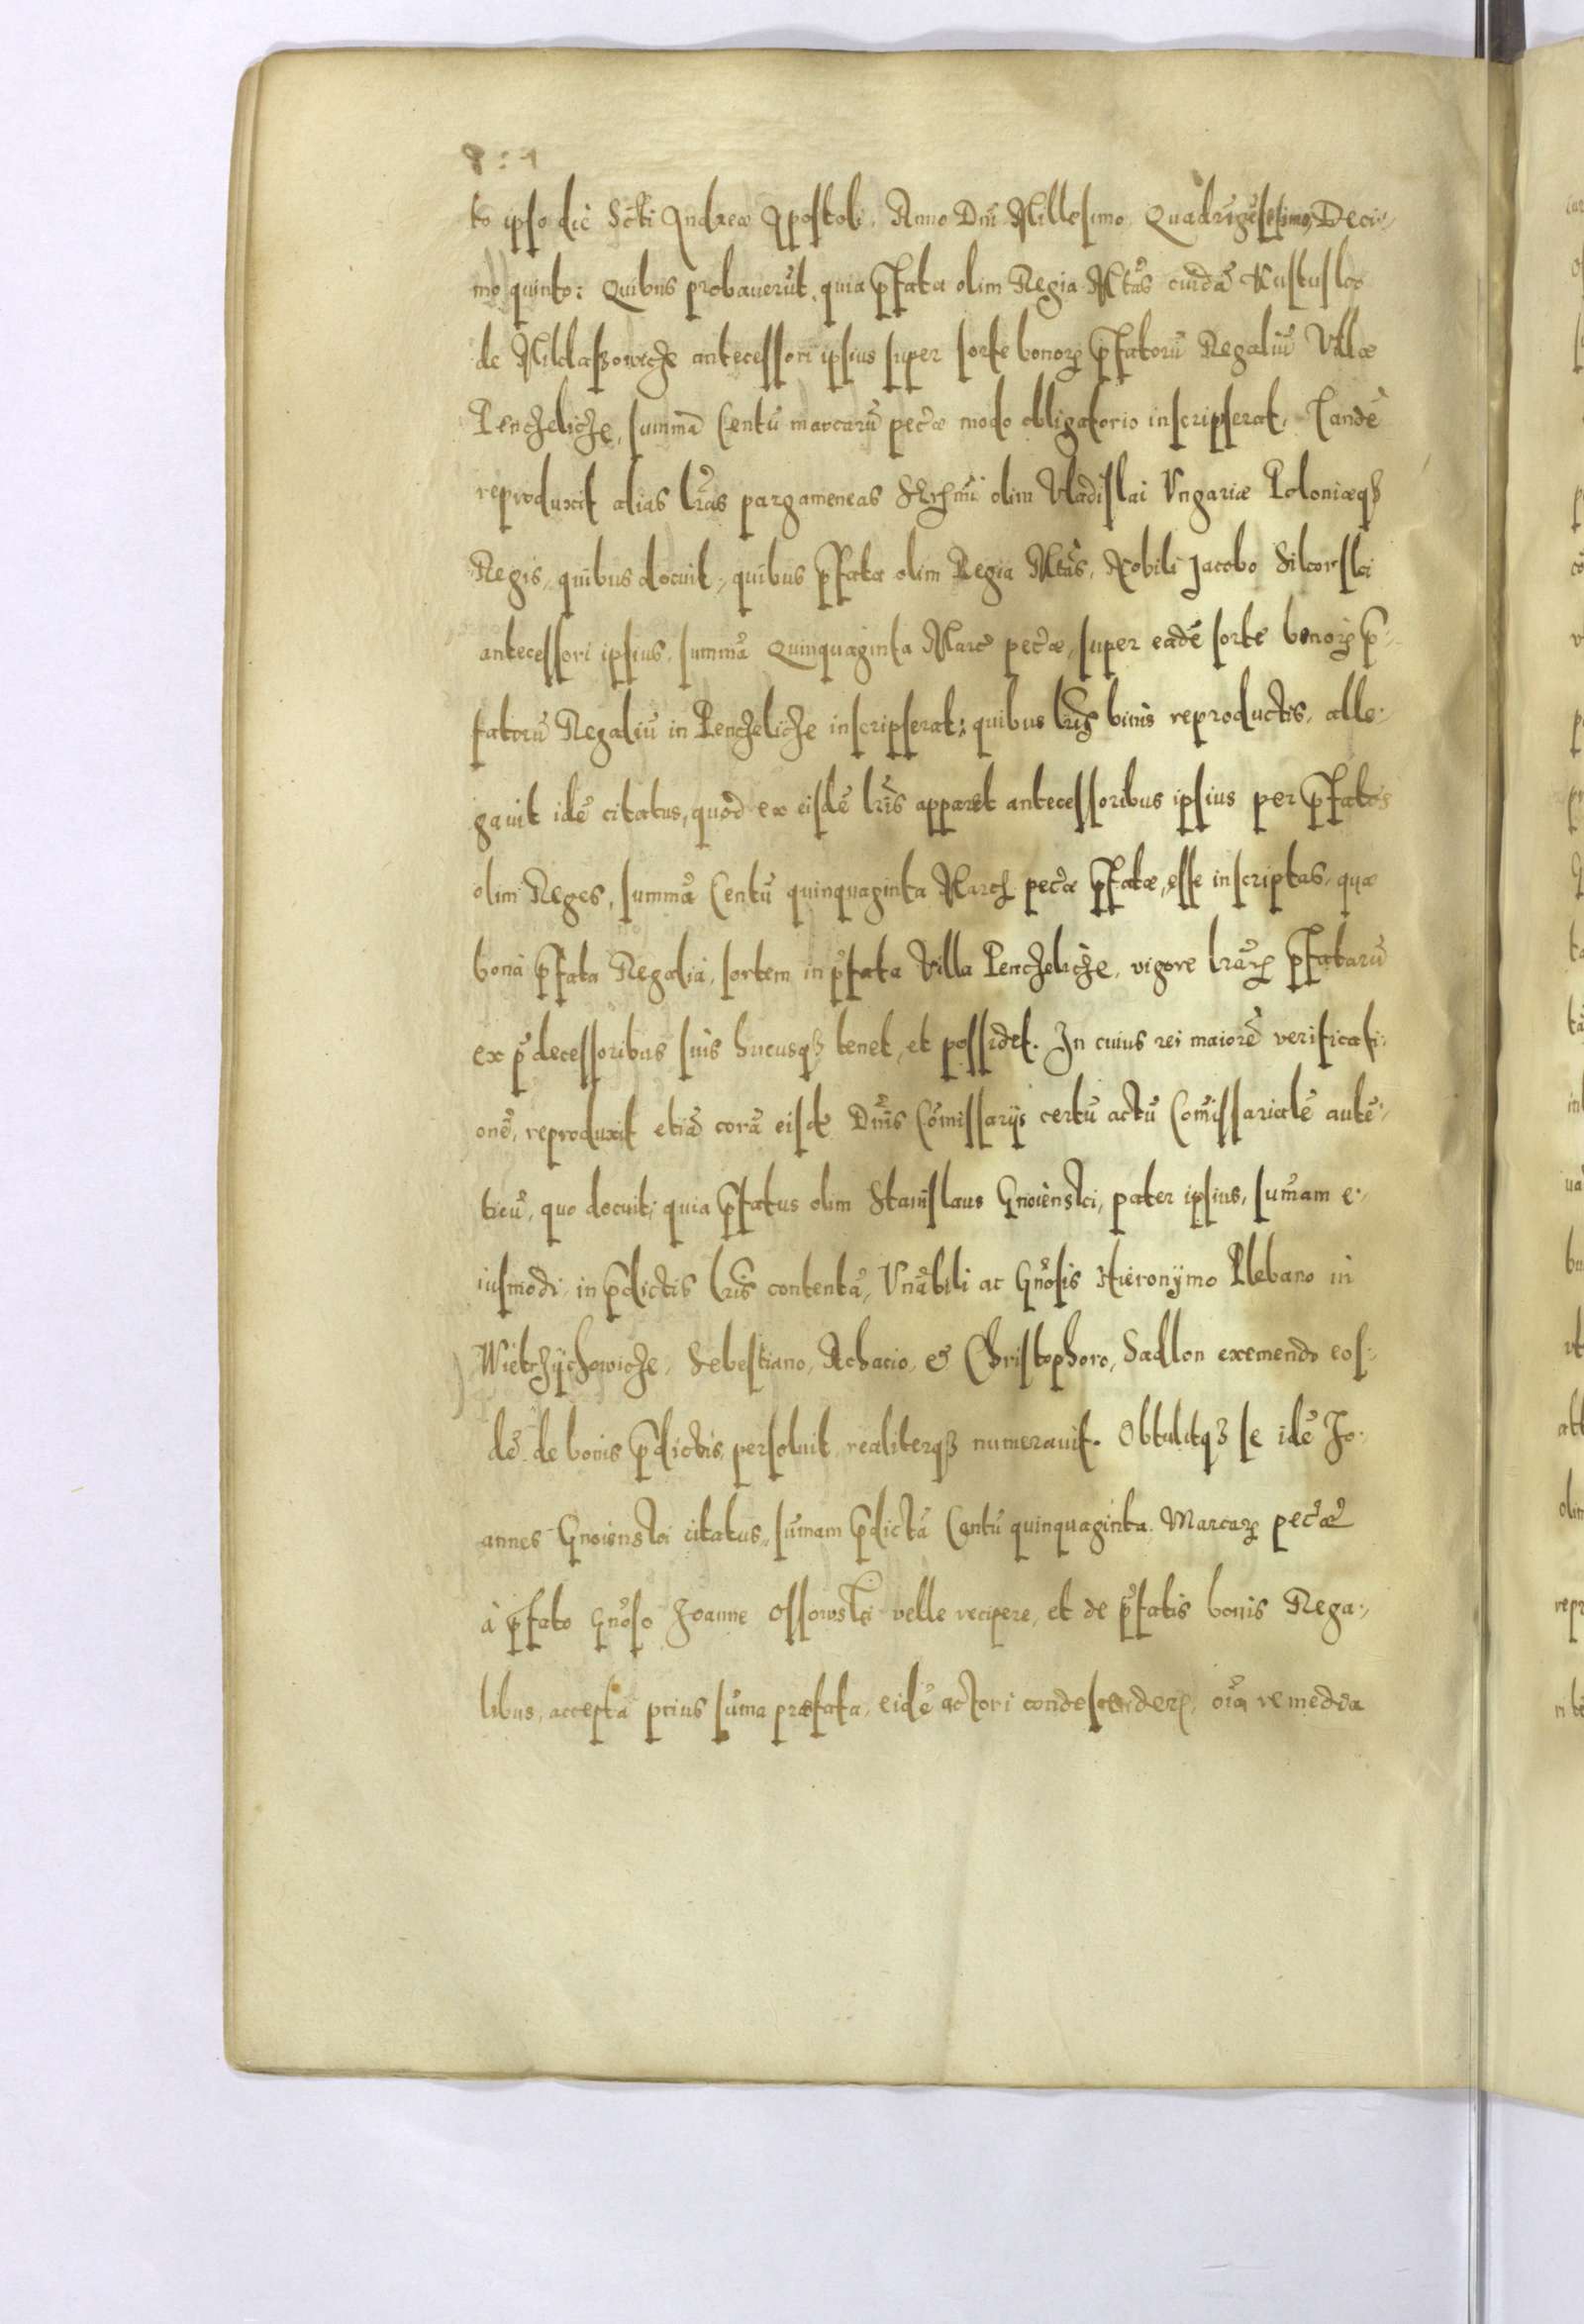 to ipso die Scti Andreæ Apostoli. Anno Dni Millesimo Quadrigesesimo, Deci,,
mo quinto: Quibus probauerut, quia pfata olim Regia Mtas cuidā Kustusko
de Miklaszowicze antecessori ipsius super sorte bonorꝝ pfatorū Regaliū Villæ
Penczelicze, summā Centū marcarū pecæ modo obligatorio inscripserat, Tandē
reproduxit alias lras pargameneas Serhmi olim Vladislai Vngariæ Poloniæqꝫ
Regis, quibus docuit, quibus pfata olim Regia Mtas, Nobili Jacobo Sikorski
antecessori ipsius, summā Quinquaginta Marc pecæ, super eadē sorte bonorꝝ p,,
fatorū Regaliū in Penczelicze inscripserat; quibus lris binis reproductis, alle,,
gauit idē citatus, quod ex eisdē lris apparet antecessoribus ipsius per pfatos
olim Reges, summā Centū quinquaginta March pecæ pfatæ, esse inscriptas, quæ
bona pfata Regalia, sortem in pfata Villa Penczelicze, vigore lrarꝝ pfatarū
ex pdecessoribus suis hucusqꝫ tenet, et possidet. In cuius rei maiorē verificati,,
onē, reproduxit etiā corā eisdē Dnis Comissarijs certū actū Comissarialē autē,,
ticū, quo docuit, quia pfatus olim Stanislaus Gnoienski, pater ipsius, sumam e,,
iusmodi in pdictis lris contentā, Vnabili ac Gnosis Hieronijmo Plebano in
Wietrzÿchowicze, Sebestiano, Achacio, & Christophoro, Sadlon exemendo eos,,
dē de bonis pdictis, persoluit realiterqꝫ numerauit. Obtulitqꝫ se idē Jo,,
annes Gnoienski citatus, sumam pdictā Centū quinquaginta Marcarꝝ pecæ
à pfato Gnoso Joanne Ossowski velle recipere, et de pfatis bonis Rega,,
libus, accepta prius suma præfata, eidē actori condescenderꝫ, oia remedia